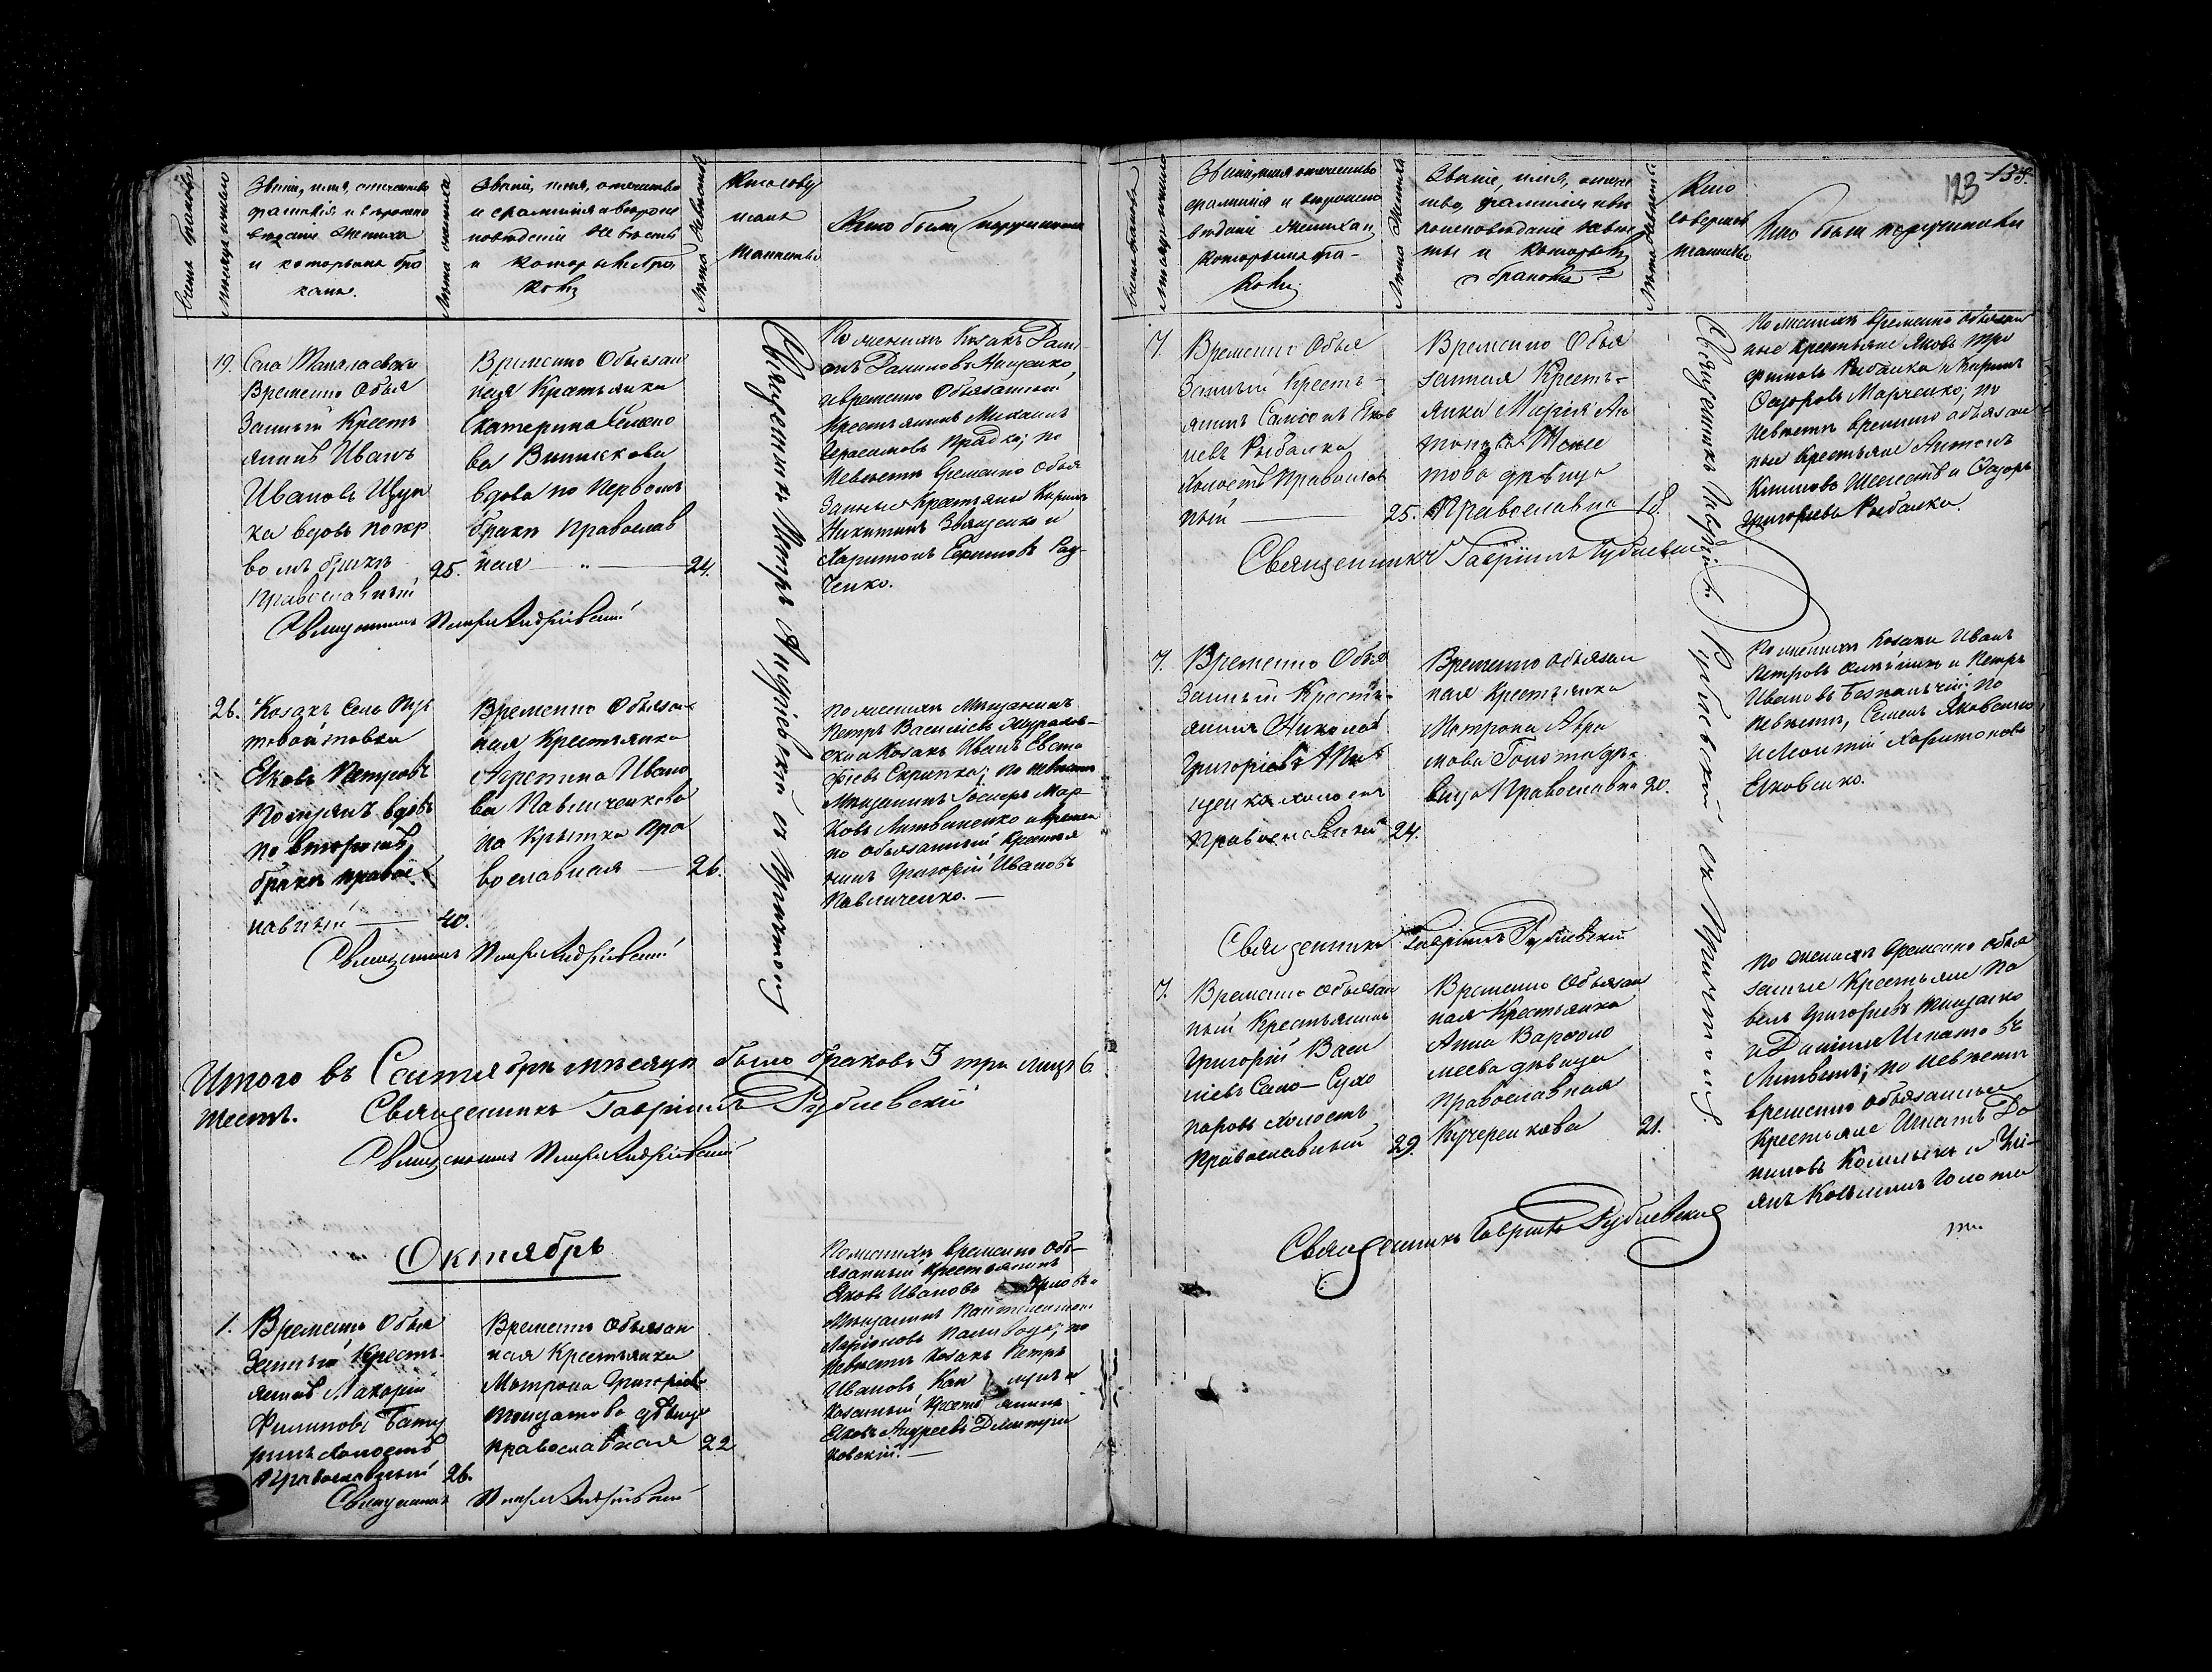 Счетъ браковъ
Мѣсяцъ и число
Званіе, имя, отчество
фамилія и вѣроиспо
вѣданіе Жениха
и которымъ бра
комъ.
Лѣта жениха
Званіе, имя, отчество
и фамилія и вѣроис
повѣданіе Невѣсты
и которымъ бра
комъ
Лѣта Невѣсты
Кто совер
шалъ
Таинство
Кто были поручители
19.
Села
Временно Обяз
занный Кресть
янинъ Иванъ
Ивановъ Щу
ка вдовъ по пер
вомъ бракѣ
Православный
25.
Временно Обязан
ная Крестьянка
Екатерина
ва
вдова по первомъ
бракѣ Православ
ная — „ —
24.
Священникъ Петръ Андріевскій съ причтомъ
По женихѣ Козакъ Дани
илъ Даниловъ Ищенко,
и временно Обязанный
крестьянинъ Михаилъ
Герасимовъ Прядко; по
Невѣстѣ временно Обяз
занные Крестьяне Кирилъ
Никитинъ Звященко и
Харитонъ Ефимовъ Рад-
ченко.
Священникъ Петръ Андріевскій
26.
Козакъ Села
Яковъ Петровъ
вдовъ
по второмъ
бракѣ правос
лавный —
40.
Временно Обязан
ная Крестьянка
Агрепина Ивано
ва Павличенкова
Пра
вославная —
26.
По женихѣ Мѣщанинъ
Петръ Василіевъ Журавль-
и Козакъ Иванъ Евста
фіевъ Скрипка; по невѣстѣ
Мѣщанинъ Мар-
ковъ Литвиненко и времен
но обязанный Крестья
нинъ Григорій Ивановъ
Павличенко. —
Священникъ Петръ Андріевскій
Итого въ Сентябрѣ мѣсяцѣ было браковъ 3 три лицъ 6
шесть. Священникъ Гавріилъ Рублевскій
Священникъ Петръ Андріевскій
Октябрь
1.
Временно Обяз
занный Кресть-
янинъ Макарій
Филиповъ Бату
ринъ Холостъ
Православный
26.
Временно Обязан
ная Крестьянка
Матрона Григоріев
дѣвица
православная
22
По женихѣ временно Об-
язанный Крестьянинъ
Яковъ Ивановъ
Мѣщанинъ Пантелеимонъ
Ларіоновъ Паливода; по
Невѣстѣ Козакъ Петръ
Ивановъ
Яковъ Андреевъ Дмитри
ковскій. —
Священникъ Петръ Андріевскій
123
Счетъ браковъ
Мѣсяцъ и число
Званіе, имя отчество
фамилія и вѣроиспо
вѣданіе Жениха и
которымъ бра-
комъ.
Лѣта Жениха
Званіе, имя, отчес
тво, фамилія и вѣ
роисповѣданіе невѣс
ты и которымъ
бракомъ
Лѣта Невѣсты
Кто
совершалъ
таинство
Кто были поручители
7.
Временно Обяз
занный Кресть-
янинъ Самсонъ Яков
левъ Рыбалка
Холостъ Православ
ный —
25.
Временно Обяз
занная Кресть-
янка Марія Ан
тонова Шеле
това дѣвица
Православна
18.
Священникъ Гавріилъ Рублевскій съ Причтомъ.
По женихѣ временно обязан
ные крестьяне Яковъ Тро
фимовъ Рыбалка и Кирилъ
Федоровъ Марченко; по
Невѣстѣ временно обязан
ные крестьяне Антонъ
Климовъ Шелестъ и Федоръ
Григорьевъ Рыбалка.
Священникъ Гавріилъ Рублевскій
7.
Временно Обяз
занный Кресть-
янинъ Николай
Григоріевъ
щенко холостъ
Православный
24.
Временно обязан
ная Крестьянка
Матрона Авра
мова
вица Православна
20.
По женихѣ Козаки Иванъ
Петровъ и Петръ
Ивановъ Безпальчій; по
невѣстѣ, Семенъ Яковенко
и Леонтій Харитоновъ
Яковенко.
Священникъ Гавріилъ Рублевскій
7.
Временно обязан
ный Крестьянинъ
Григорій Васи
ліевъ Само-Сухо
паровъ холостъ
Православный
29.
Временно Обязан
ная Крестьянка
Анна Варфоло
меева дѣвица
православная
Кучеренкова
21.
По женихѣ временно обяз
занные Крестьяне Па
велъ Григорьевъ Тищенко
и Даніилъ Игнатовъ
Литвинъ; по невѣстѣ
временно обязанные
Крестьяне Игнатъ Да
ниловъ и
янъ Козьминъ Голото
та.
Священникъ Гавріилъ Рублевскій